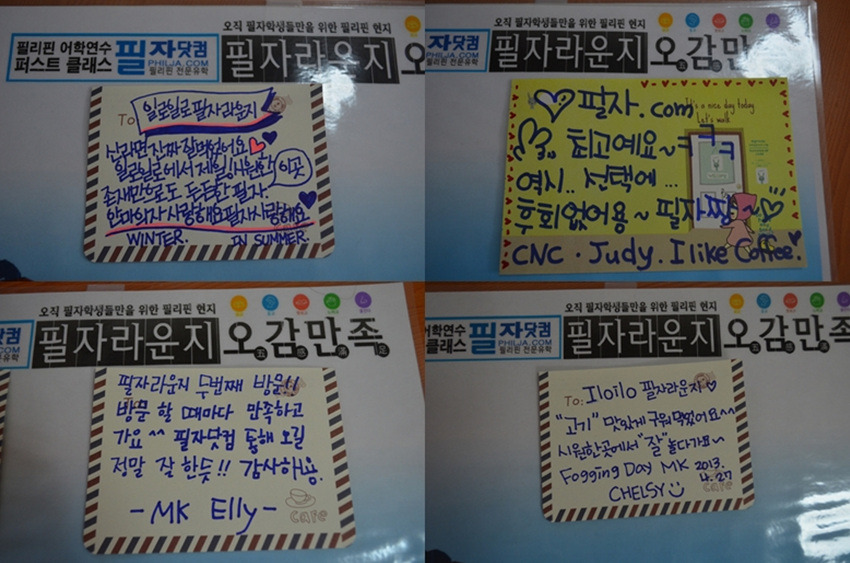 오직 필자학생들만을 위한 필리핀 현지
필리핀 어학연수
퍼스트 클래스
필자닷컴
PHILJA.COM
필리핀 전문유학
필자라운지 오
To 일로일로 필자라운지
신라면 진짜 잘먹었어요
일로일로에서 제일! 시원한 이곳
존재만으로도 든든한 필자
안마의자 사랑해요 필자 사랑해요
WINTER. IN SUMMER.
오직 필자학생들만을 위한 필리핀 현지
자닷컴
PHILJA.COM
필리핀 전문유학
필자라운지 오감만
필자.com
It's a nice day today
Let's walk
최고예요~ㅋㅋㅋ
역시.. 선택에...
후회없어용~ 필자짱~
CNC. Judy. I like Coffee.
오직 필자학생들만을 위한 필리핀 현지
닷컴
A.COM
전문유학
필자라운지 오감만족
필자라운지 두번째 방문!!
방문 할 때마다 만족하고
가요^^ 필자닷컴 통해 오길
정말 잘 한듯!! 감사해용.
-MK Elly-
cafe
오직 필자학생들만을 위한 필리핀 현지
어학연수
클래스
필자닷컴
PHILJA.COM
필리핀 전문유학
필자라운지 오감만족
To: Iloilo 필자라운지♡
"고기" 맛있게 구워먹었어요^^
시원한곳에서 "잘" 놀다가요~
Fogging Day MK 2013.
4.27
CHELSY
cafe